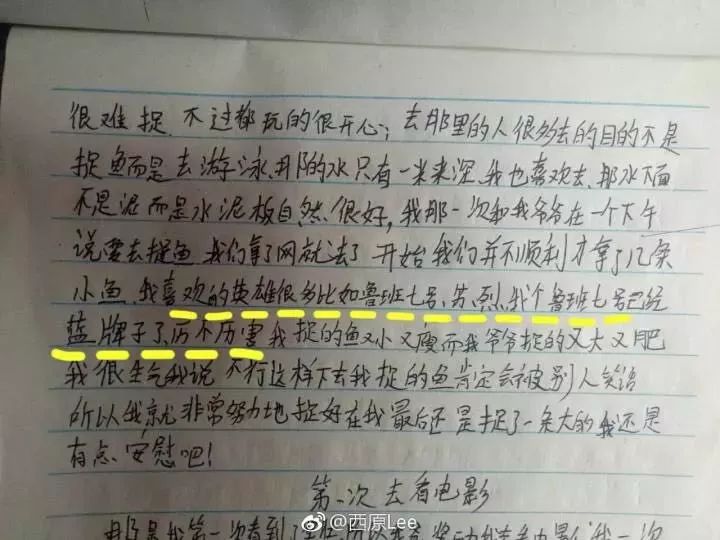 很难捉.不过都玩的很开心；去那里的人很多去的目的不是
捉鱼而是去游泳.那的水只有一米来深.我也喜欢去.那水下面
不是泥而是水泥板自然很好,我那一次和我爷爷在一个下午
说要去捉鱼.我们拿了网就去了.开始我们并不顺利才拿了几条
小鱼.我喜欢的英雄很多比如鲁班七号.芈.烈.我个鲁班七号已经
蓝牌子了.厉不厉害我捉的鱼又小又瘦而我爷爷捉的又大又肥
我很生气我说 不行这样下去我捉的鱼肯定会被别人笑语
所以我就非常努力地捉好在我最后还是捉了一条大的我还是
有点安慰吧!
第一次去看电影
那是我第一次看到
@西原Lee